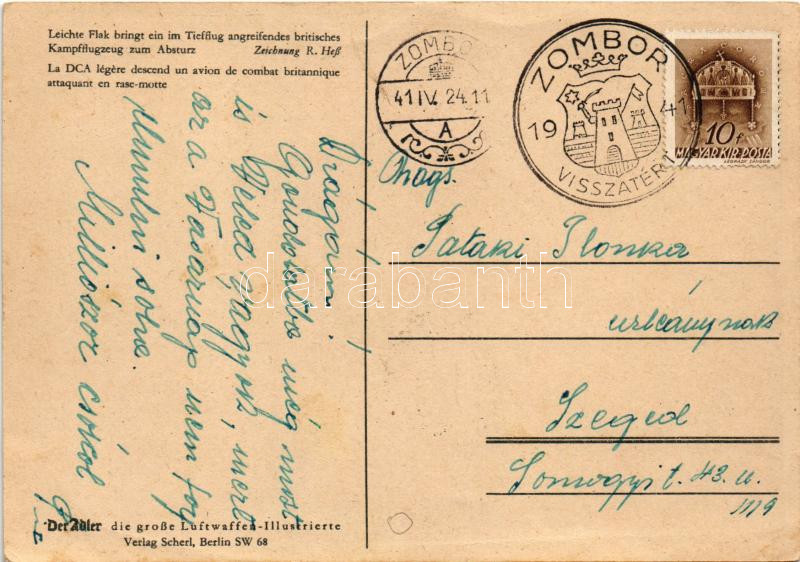 Leichte Flak bringt ein im Tiefflug angreifendes britisches
Kampfflugzeug zum Absturz Zeichnung R. Heß
La DCA légère descend un avion de combat britannique
attaquant en rase-motte
ZOMBOR
41 IV. 24. 11
A
ZOMBOR
19 41
VISSZATÉRT
10 f
MAGYAR KIR. POSTA
LÉGRÁDY SÁNDOR
Drágám!
Gondolatba még most
is Veled vagyok, mert
ez a Vasárnap nem fog
elmulni soha.
Milliószor csókol
Nags.
Pataki Ilonka
urleánynak
Szeged
Somogyi t. 43. u.
darabanth
Der Adler die große Luftwaffen-Illustrierte
Verlag Scherl, Berlin SW 68